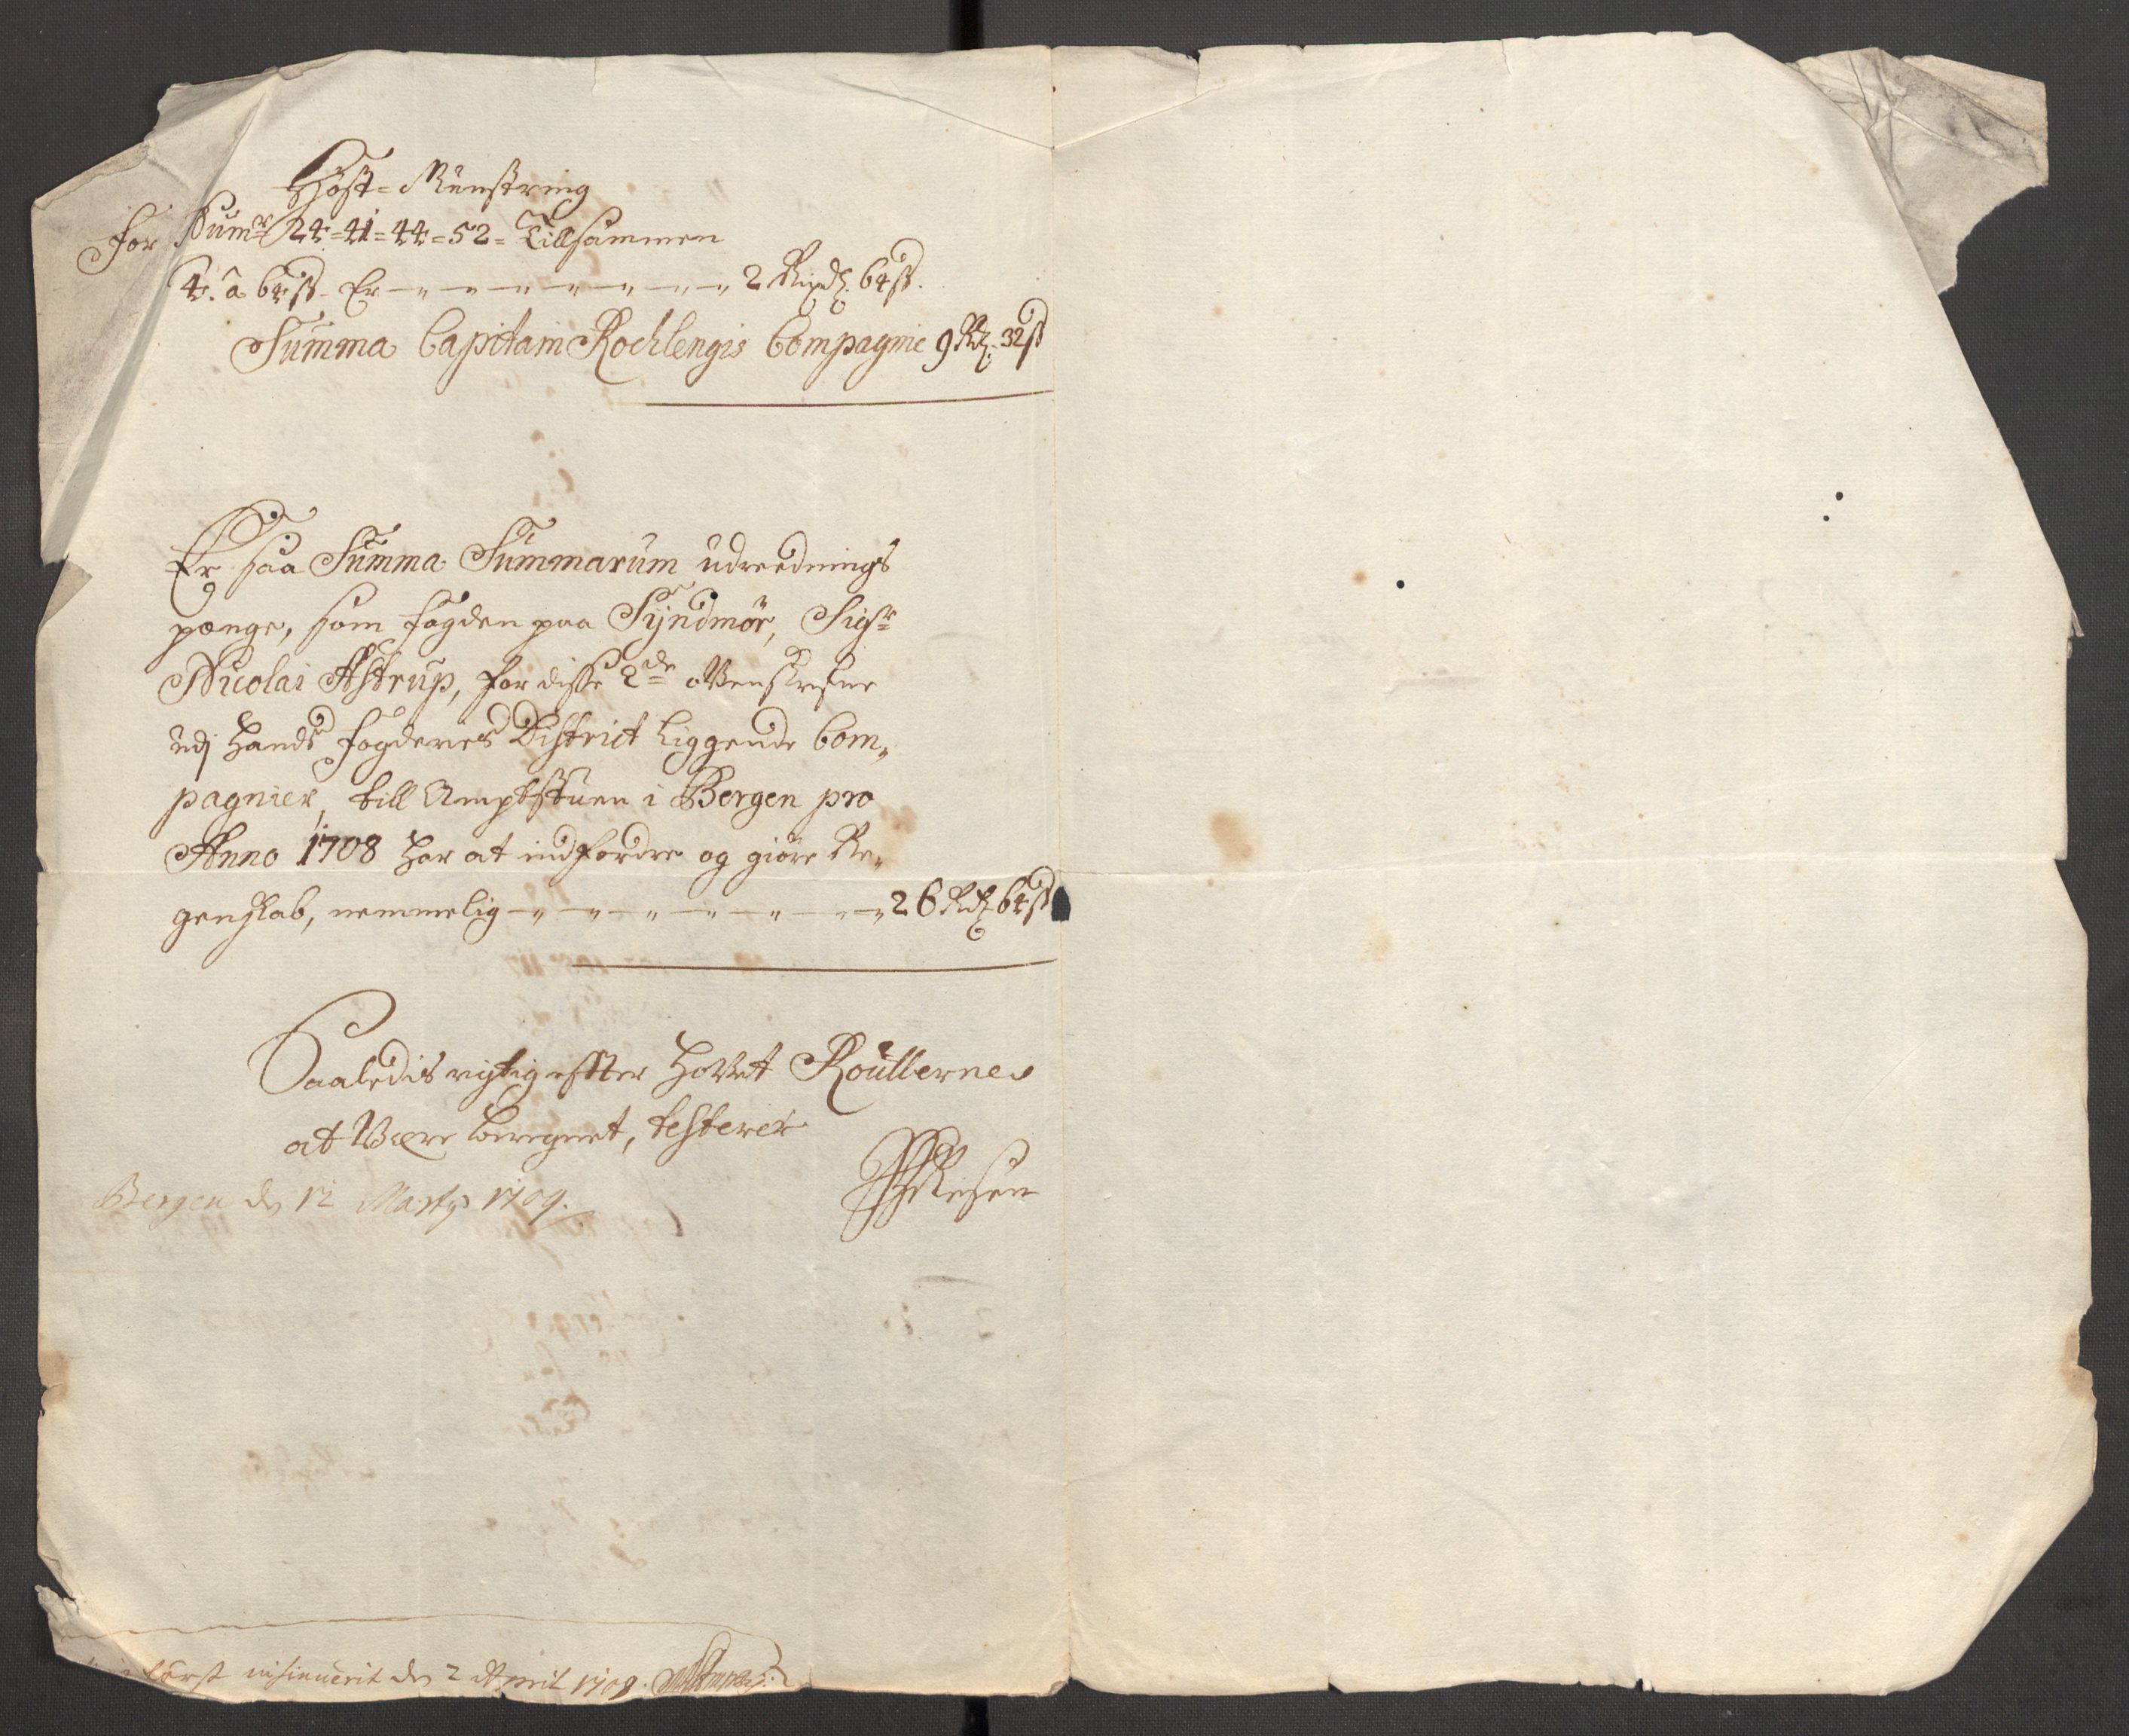 Höst-Munstring
For Numr 24-41-44-52- Tillsammen
4. a 64 ß. Er 2 Rixdr. 64 ß.
Summa Capitain Rochlengis Compagnie 9 Rdr. 32 ß
Er saa Summa Summarum udreednings
penge, som fogden paa Syndmör, Sigr
Nicolai Astrup, for disse 2de ovenskrefne
udj hands fogderies District liggende Com„
pagnier, till Amptstuen i Bergen pro
Anno 1708 har at indfordre og giöre Re„
genskab, nemmelig 26 Rdr 64 ß
Saaledis rigtig effter hovet Roullernes
at være beregnet, testerer
Bergen dn 12 Marty 1709.
först insinuerit dn 2 April 1709.